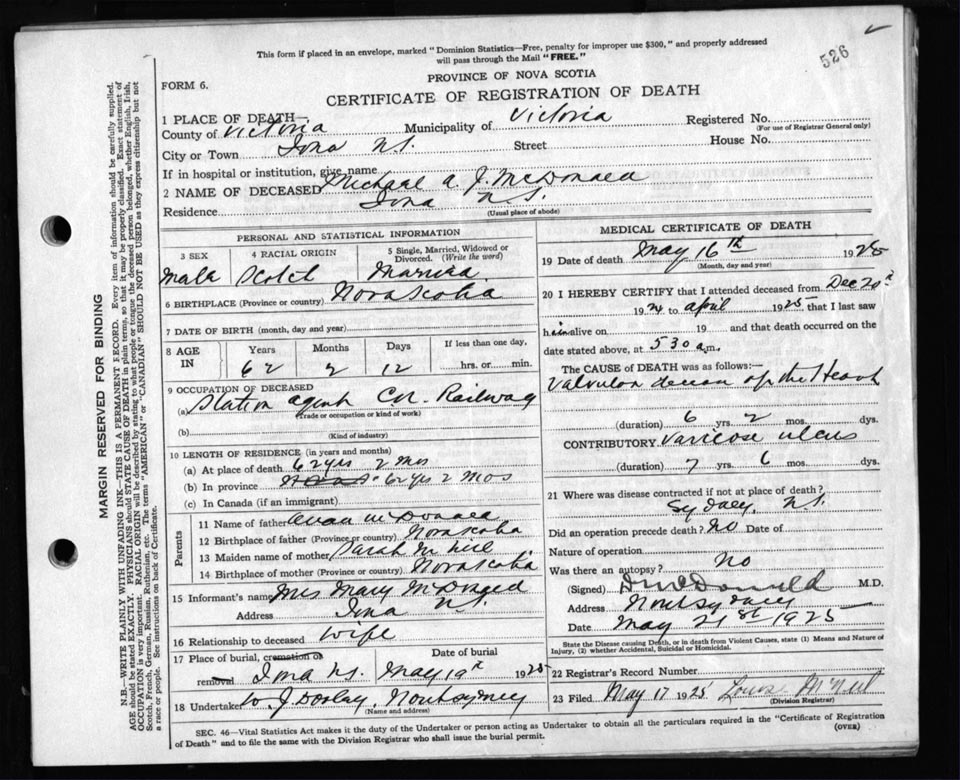 526
This form if placed in an envelope, marked "Dominion Statistics—Free, penalty for improper use $300," and properly addressed
will pass through the Mail "FREE."
PROVINCE OF NOVA SCOTIA
FORM 6.
CERTIFICATE OF REGISTRATION OF DEATH
MARGIN RESERVED FOR BINDING
N.B.—WRITE PLAINLY WITH UNFADING INK—THIS IS A PERMANENT RECORD. Every item of information should be carefully supplied.
AGE should be stated EXACTLY. PHYSICIANS should STATE CAUSE OF DEATH in plain terms, so that it may be properly classified. Exact statement of
OCCUPATION is very important. RACIAL ORIGIN will be described by stating to what people or tongue the deceased person belonged, whether English, Irish,
Scotch, French, German, Russian, Ruthenian, etc. The terms "AMERICAN" or "CANADIAN" SHOULD NOT BE USED as they express citizenship but not
a race or people. See instructions on back of Certificate.
1 PLACE OF DEATH—
County of Victoria Municipality of Victoria Registered No.
(For use of Registrar General only)
City or Town Iona N.S. Street House No.
If in hospital or institution, give name
2 NAME OF DECEASED Michael A. J. McDonald
Residence Iona N.S.
(Usual place of abode)
PERSONAL AND STATISTICAL INFORMATION
3 SEX 4 RACIAL ORIGIN 5 Single, Married, Widowed or Divorced. (Write the word)
Male Scotch Married
6 BIRTHPLACE (Province or country) Nova Scotia
7 DATE OF BIRTH (month, day and year)
8 AGE IN Years Months Days If less than one day,
62 2 12 hrs. or min.
9 OCCUPATION OF DECEASED
(a) Station agent C.N. Railway
(Trade or occupation or kind of work)
(b)
(Kind of industry)
10 LENGTH OF RESIDENCE (in years and months)
(a) At place of death 62 yrs 2 mos
(b) In province 62 yrs 2 mos
(c) In Canada (if an immigrant)
Parents
11 Name of father McDonald
12 Birthplace of father (Province or country) Nova Scotia
13 Maiden name of mother Sarah McNeil
14 Birthplace of mother (Province or country) Nova Scotia
15 Informant's name Mrs Mary McDonald
Address Iona N.S.
16 Relationship to deceased wife
17 Place of burial, cremation or removal Date of burial
Iona N.S. May 19th 1925
18 Undertaker W. J. Dooley North Sydney
(Name and address)
MEDICAL CERTIFICATE OF DEATH
19 Date of death May 16th 1925
(Month, day and year)
20 I HEREBY CERTIFY that I attended deceased from Dec 20th
1924 to April 1925 that I last saw
him alive on 19 and that death occurred on
date stated above, at 5 30 a.m.
The CAUSE of DEATH was as follows:—
Valvular disease of the Heart
(duration) 6 yrs. 2 mos. dys.
CONTRIBUTORY Varicose ulcers
(duration) 7 yrs. 6 mos. dys.
21 Where was disease contracted if not at place of death?
Sydney N.S.
Did an operation precede death? no Date of
Nature of operation
Was there an autopsy? No
(Signed) McDonald M.D.
Address North Sydney
Date May 21st 1925
State the Disease causing Death, or in death from Violent Causes, state (1) Means and Nature of
Injury, (2) whether Accidental, Suicidal or Homicidal.
22 Registrar's Record Number
23 Filed May 17 1925 Louis McNeil
(Division Registrar)
SEC. 46—Vital Statistics Act makes it the duty of the Undertaker or person acting as Undertaker to obtain all the particulars required in the "Certificate of Registration
of Death" and to file the same with the Division Registrar who shall issue the burial permit.
(OVER)